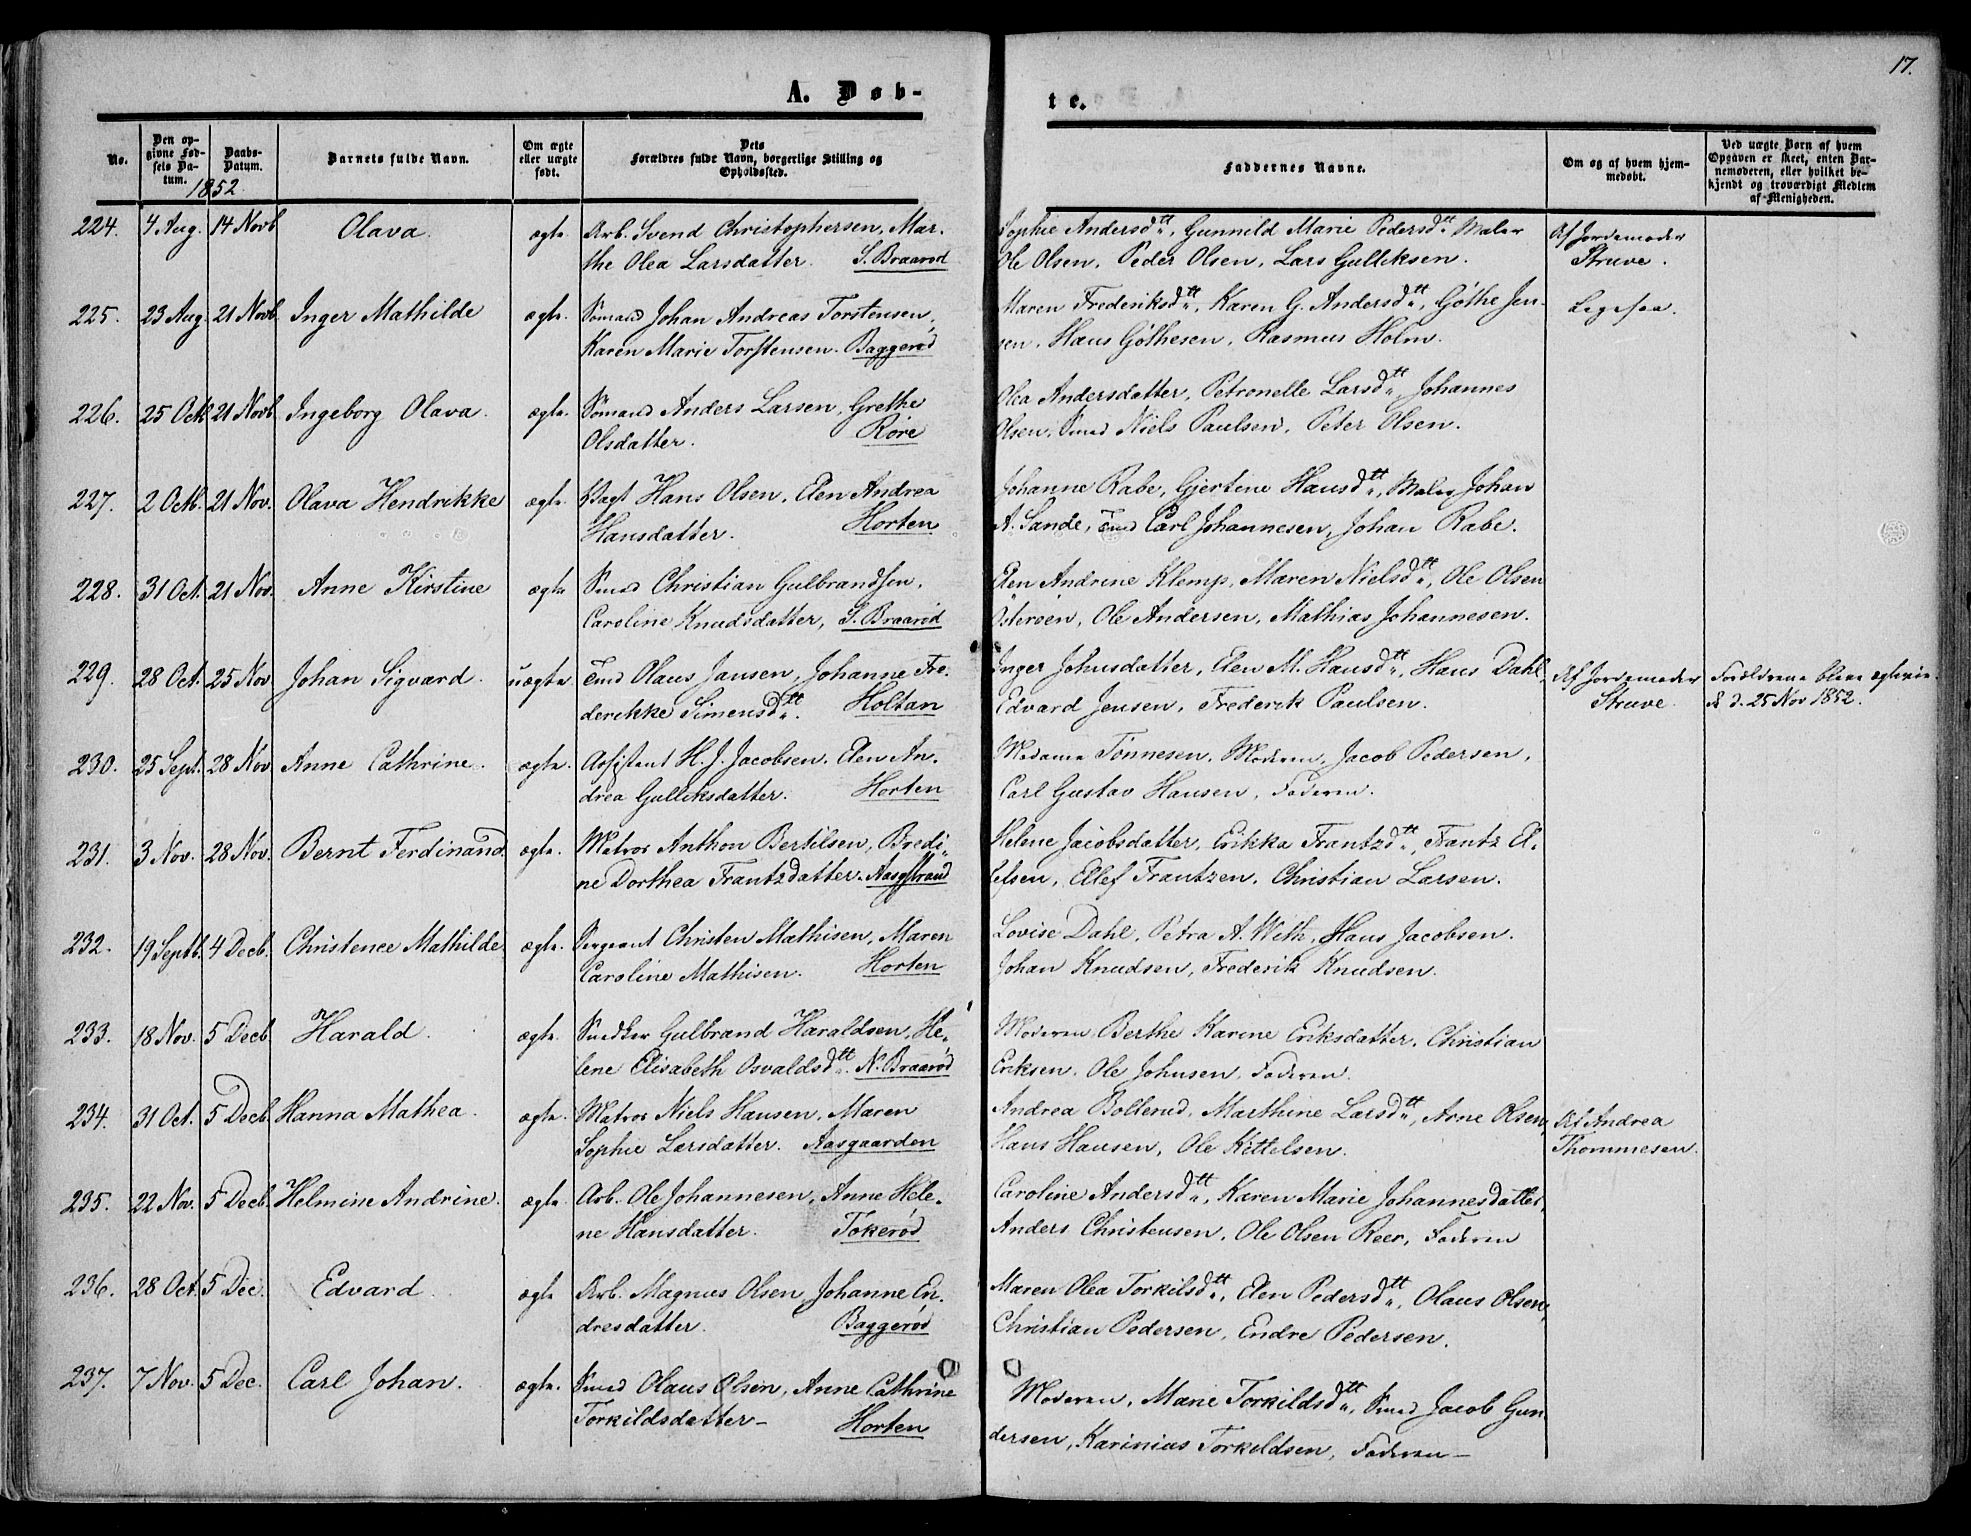 17.
A. Døb-
te.
No.
Den op-
givne Fød-
sels Da-
tum.
Daabs-
Datum.
1852
Barnets fulde Navn.
Om ægte
eller uægte
født.
Dets
Forældres fulde Navn, borgerlige Stilling og
Opholdssted.
Faddernes Navne.
Om og af hvem hjem-
medøbt.
Ved uægte Børn af hvem
Opgaven er skeet, enten Bar-
nemoderen, eller hvilket be-
kjendt og troværdigt Medlem
af Menigheden.
224. 4 Aug. 14 Novb Olava. ægte Arb. Svend Christophersen, Mar- Sophie Andersdtt, Gunnild Marie Pedersdtt Maler Af Jordemoder
the Olea Larsdatter. S. Braarød Ole Olsen, Peder Olsen, Lars Gulliksen. Struve.
225. 23 Aug. 21 Novb Inger Mathilde ægte. Sømand Johan Andreas Torstensen, Maren Frederiksdtt, Karen G. Andersdtt, Göthe Jen-
Karen Marie Torstensen. Baggerød sen, Hans Göthesen, Rasmus Holm. Ligesaa.
226. 25 Oct 21 Novb Ingeborg Olava. ægte. Sømand Anders Larsen, Grethe Olea Andersdatter, Petronelle Larsdtt Johannes
Olsdatter. Röre Olsen, Smed Niels Paulsen, Peter Olsen.
227. 2 Octb. 21 Nov. Olava Hendrikke ægte. Vagt Hans Olsen, Elen Andrea Johanne Rabe, Gjertine Hansdtt, Maler Johan
Hansdatter. Horten A. Sande, Tmd Carl Johannesen, Johan Rabe.
228. 31 Oct. 21 Nov. Anne Kirstine ægte Smed Christian Gulbrandsen, Elen Andrine Klemp, Maren Nielsdtt, Ole Olsen
Caroline Knudsdatter, S. Braarød Österöen, Ole Andersen, Mathias Johannesen.
229. 28 Oct. 25 Nov Johan Sigvard. uægte. Tmd Olaus Jansen, Johanne Fre- Inger Johnsdatter, Elen M. Hansdtt, Hans Dahl, Af Jordemoder Forældrene bleve ægteviе-
derikke Simensdtt. Holtan Edvard Jensen, Frederik Paulsen. Struve. de d. 25 Nov 1852.
230. 25 Sept. 28 Nov Anne Cathrine. ægte. Assistent H. J. Jacobsen, Elen An- Madame Tönnesen, Moderen, Jacob Pedersen,
drea Gulliksdatter. Horten Carl Gustav Hansen, Faderen.
231. 3 Nov. 28 Nov. Bernt Ferdinand. ægte. Matros Anthon Bertilsen, Bredi- Helene Jacobsdatter, Erikka Frantzdtt, Frantz El-
ne Dorthea Frantzdatter. Aasgstrand lefsen, Ellef Frantzen, Christian Larsen.
232. 19 Septb. 4 Decb. Christence Mathilde ægte. Sergeant Christen Mathisen, Maren Lovise Dahl, Petra A. Weth, Hans Jacobsen.
Caroline Mathisen. Horten Johan Knudsen, Frederik Knudsen.
233. 18 Nov. 5 Decb Harald. ægte. Snedker Gulbrand Haraldsen, He- Moderen Berthe Karine Eriksdatter, Christian
lene Elisabeth Osvaldsdtt. N. Braarød Eriksen, Ole Johnsen, Faderen.
234. 31 Oct. 5 Decb. Hanna Mathea. ægte. Matros Niels Hansen, Maren Andrea Bollerud, Marthine Larsdtt, Arne Olsen, Af Andrea
Sophie Larsdatter. Aasgaarden Hans Hansen, Ole Kittelsen. Thommesen.
235. 22 Nov. 5 Decb. Helmine Andrine. ægte. Arb. Ole Johannesen, Anne Hele- Caroline Andersdtt, Karen Marie Johannesdatter,
ne Hansdatter. Tokerød Anders Christensen, Ole Olsen Reer, Faderen
236. 28 Oct. 5 Dec. Edvard. ægte Arb. Magnus Olsen, Johanne En- Maren Olea Torkilsdtt, Elen Pedersdtt, Olaus Olsen,
dresdatter. Baggerød Christian Pedersen, Endre Pedersen.
237. 7 Nov. 5 Dec. Carl Johan. ægte. Smed Olaus Olsen, Anne Cathrine Moderen, Marie Torkildsdtt, Smed Jacob Gun-
Torkildsdatter- Horten dersen, Karinius Torkeldsen, Faderen-